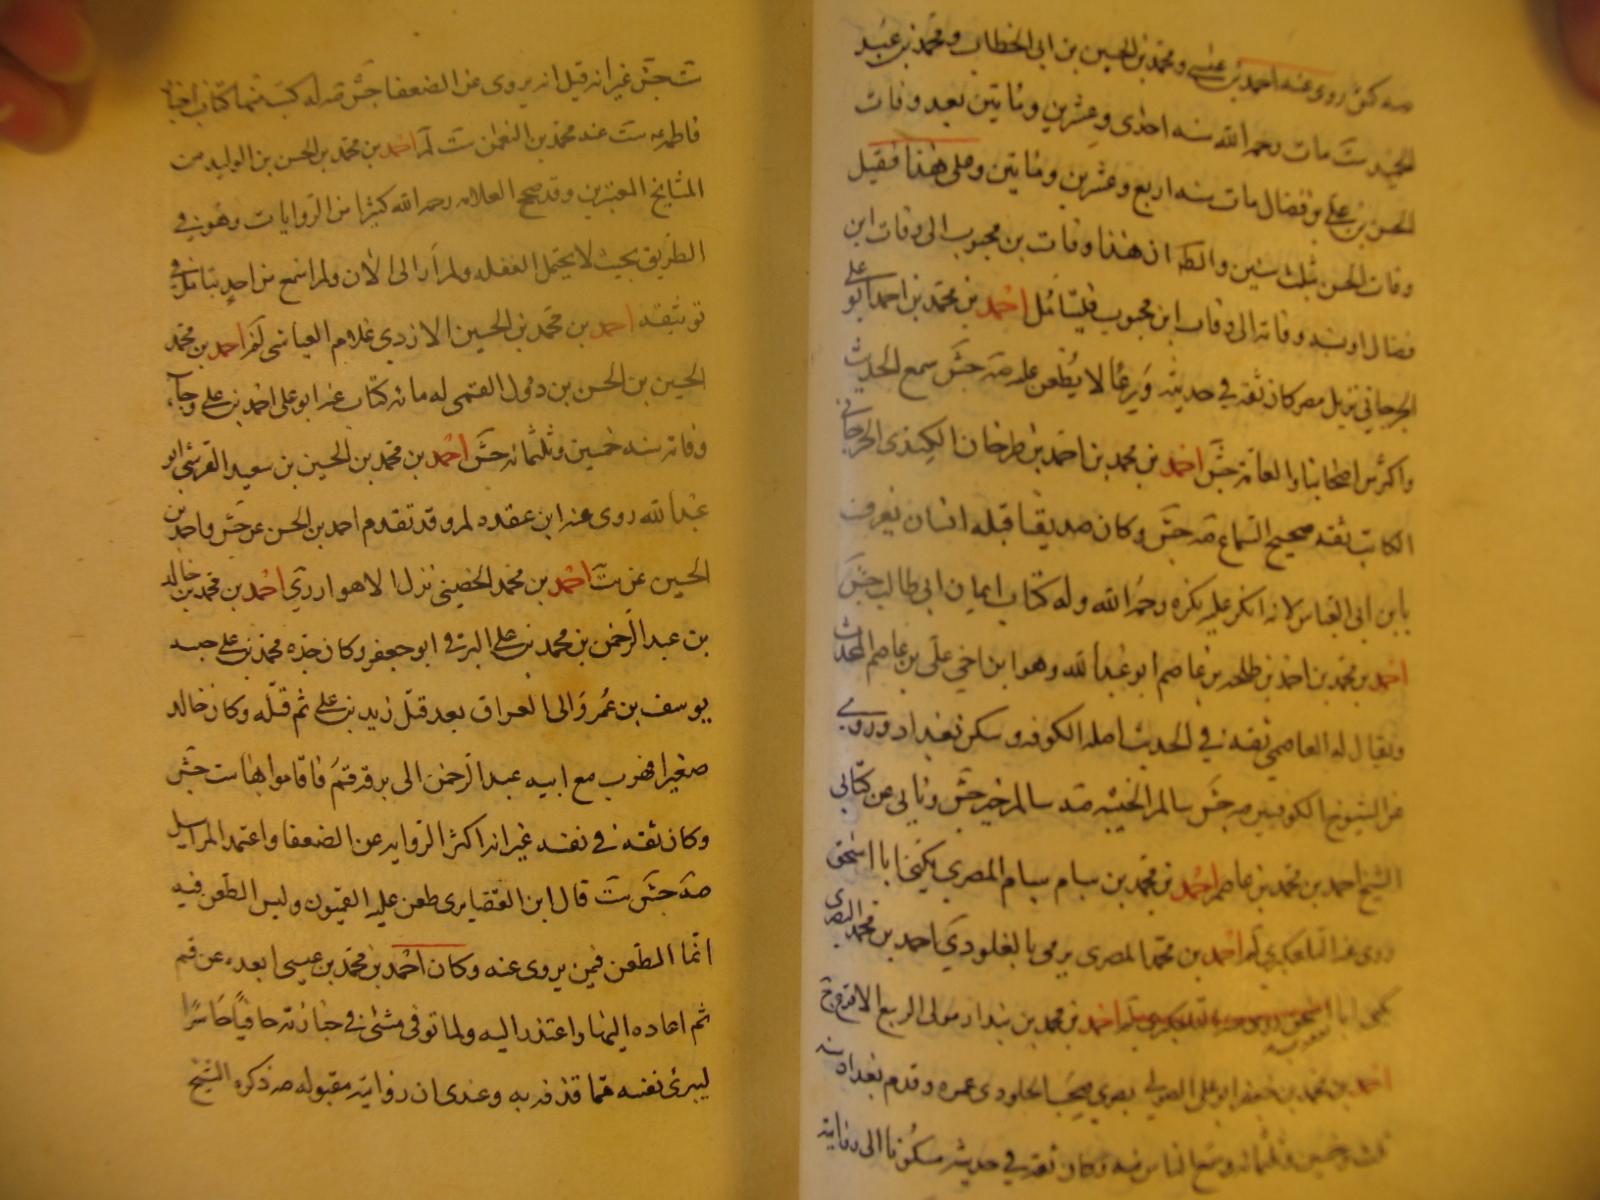 صه كش روى عنه احمد بن عيسى ومحمد بن الحسين بن ابى الخطاب ومحمد بن عبد
الحميد ست مات رحمه الله سنه احدى وعشرين ومائتين بعد وفات
الحسن بن على بن فضال مات سنه اربع وعشرين ومائتين وعلى هذا فقيل
وفات الحسن بثلث سنين والظ ان هذا وفات بن محبوب الى وفات ابن
فضال او وفاته الى وفات ابن محبوب فليتامل احمد بن محمد بن احمد ابو على
الجرجانى نزيل مصر كان ثقه فى حديثه ورعا لا يطعن عليه صه جش سمع الحديث
واكثر من اصحابنا والعامة جش احمد بن محمد بن احمد بن طرخان الكندى الجرجانى
الكاتب ثقه صحيح السماع صه جش وكان صديقا قبله انسان يعرف
بابن ابى العباس لانه انكر عليه نكره رحمه الله وله كتاب ايمان ابى طالب جش
احمد بن محمد بن احمد بن طلحه بن عاصم ابو عبد الله وهو ابن اخى على بن عاصم المحدث
ويقال له العاصمى ثقه فى الحديث اصله الكوفه وسكن بغداد وروى
عن الشيوخ الكوفيين صه جش سالم الجنبه صه سالم خير جش وياتى عن كتابى
الشيخ احمد بن محمد بن عاصم احمد بن محمد بن بسام المصرى يكنى ابا اسحق
روى عنه التلعكبرى لم احمد بن محمد المصرى يرمى بالغلو دى احمد بن محمد البصرى
يكنى ابا احمد بن محمد بن بندار مولى الربيع الاقرع جخ
احمد بن محمد بن جعفر ابو على الصولى بصرى صحب الجلودى عمره وقدم بغداد سنه
ثلث وخمسين وثلثمائه وسمع الناس منه وكان ثقه فى حديثه مسكونا الى روايته
ست جش غير انه قيل انه يروى عن الضعفا جش صه له كتب منها كتاب اخبار
فاطمه ع ست عنه محمد بن النعمن ست لم احمد بن محمد بن الحسن بن الوليد من
المشايخ المعتبرين وقد صحح العلامه رحمه الله كثيرا من الروايات وهو فى
الطريق بحيث لا يحتمل الغفله ولم ار الى الان ولم اسمع من احد يتامل فى
توثيقه احمد بن محمد بن الحسين الازدى غلام العياشى لم احمد بن محمد
الحسين بن الحسن بن دول القمى له مائه كتاب عنه ابو على احمد بن على وجاء
وفاته سنه خمسين وثلثمائه جش احمد بن محمد بن الحسين بن سعيد القرشى ابو
عبد الله روى عنه ابن عقده لم وقد تقدم احمد بن الحسن عن جش واحمد بن
الحسين عن ست احمد بن محمد الحضينى نزل الاهواز دى احمد بن محمد بن خالد
بن عبد الرحمن بن محمد بن على البرقى ابو جعفر وكان جده محمد بن على حبسه
يوسف بن عمر والى العراق بعد قتل زيد بن على ثم قتله وكان خالد
صغيرا فهرب مع ابيه عبد الرحمن الى برقه قم فاقاموا بها ست جش
وكان ثقه فى نفسه غير انه اكثر الروايه عن الضعفا واعتمد المراسيل
صه جش ست قال ابن الغضايرى طعن عليه القميون وليس الطعن فيه
انما الطعن فيمن يروى عنه وكان احمد بن محمد بن عيسى ابعده عن قم
ثم اعاده اليها واعتذر اليه ولما توفى مشى فى جنازته حافيا حاسرا
ليبرى نفسه مما قذفه به وعندى ان روايته مقبوله صه ذكره الشيخ